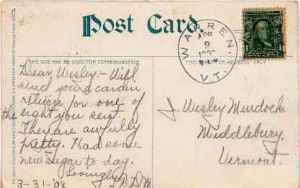 Post Card
THIS SIDE MAY BE USED FOR CORRESPONDENCE
WARREN.
APR
9
VT.
Dear Wesley:- Will
send you a card in
return for one of
the eight you sent
They are awfully
pretty. Had some
new sugar to day.
Lovingly
3-31-'08
J Wesley Murdock
Middlebury.
Vermont.